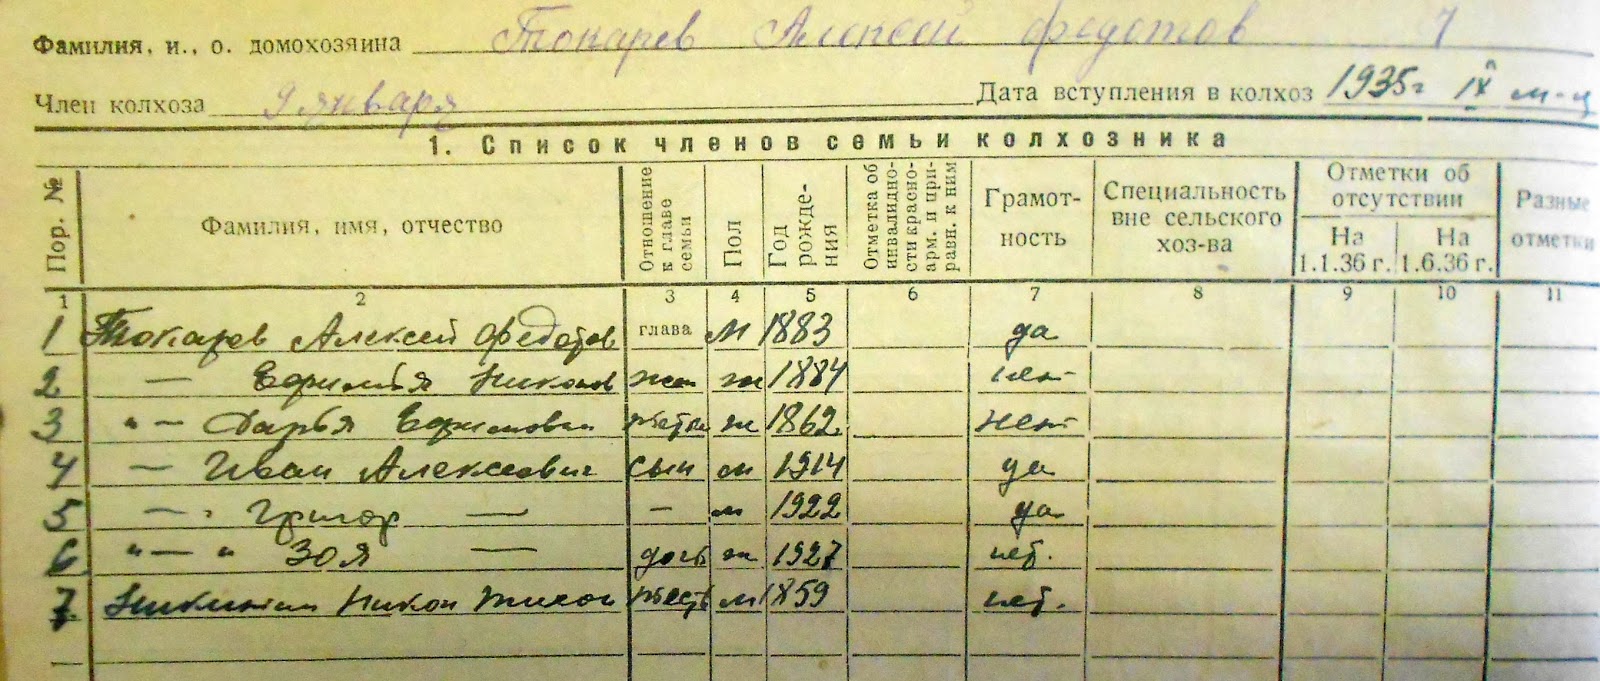 Фамилия, и., о. домохозяина Токарев Алексей Федотов 7
Член колхоза 9 января Дата вступления в колхоз 1935 г IX м-ц
1. Список членов семьи колхозника
Пор. №
Фамилия, имя, отчество
Отношение к главе семьи
Пол
Год рождения
Отметка об инвалидности красноарм. и приравн. к ним
Грамотность
Специальность вне сельского хоз-ва
Отметки об отсутствии
На 1.1.36 г.
На 1.6.36 г.
Разные отметки
1 2 3 4 5 6 7 8 9 10 11
1 Токарев Алексей Федотов глава м 1883 да
2 — Никонов жен ж 1884 нет
3 "— Дарья Ефимовна ж 1862 нет
4 — Иван Алексеевич сын м 1914 да
5 — " Григор — — м 1922 да
6 "— " Зоя — дочь ж 1927 нет.
7 Никон тесть м 1859 нет.